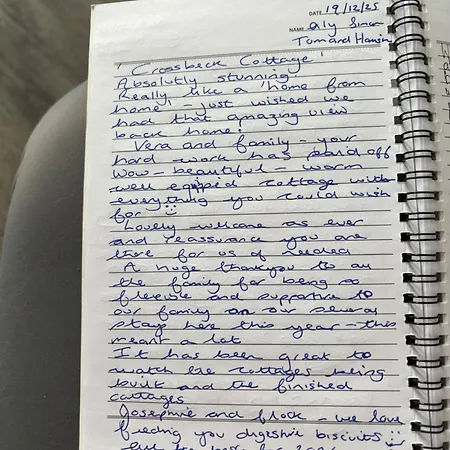 DATE 19/12/25
NAME Aly Simon
Tom and Hamish
'Crossbeck Cottage'
Absolutly stunning
Really like a 'home from
home' - just wished we
had that amazing view
back home!
Vera and family - your
hard work has paid off
Wow - beautiful - warm
well equipped cottage with
everything you could wish
for
Lovely welcome as ever
and reassurance you are
there for us if needed
A huge thankyou to all
the family for being so
flexible and supportive to
our family on our several
stays here this year - this
meant a lot
It has been great to
watch the cottages being
built and the finished
cottages
Josephine and flock - we love
feeding you digestive biscuits